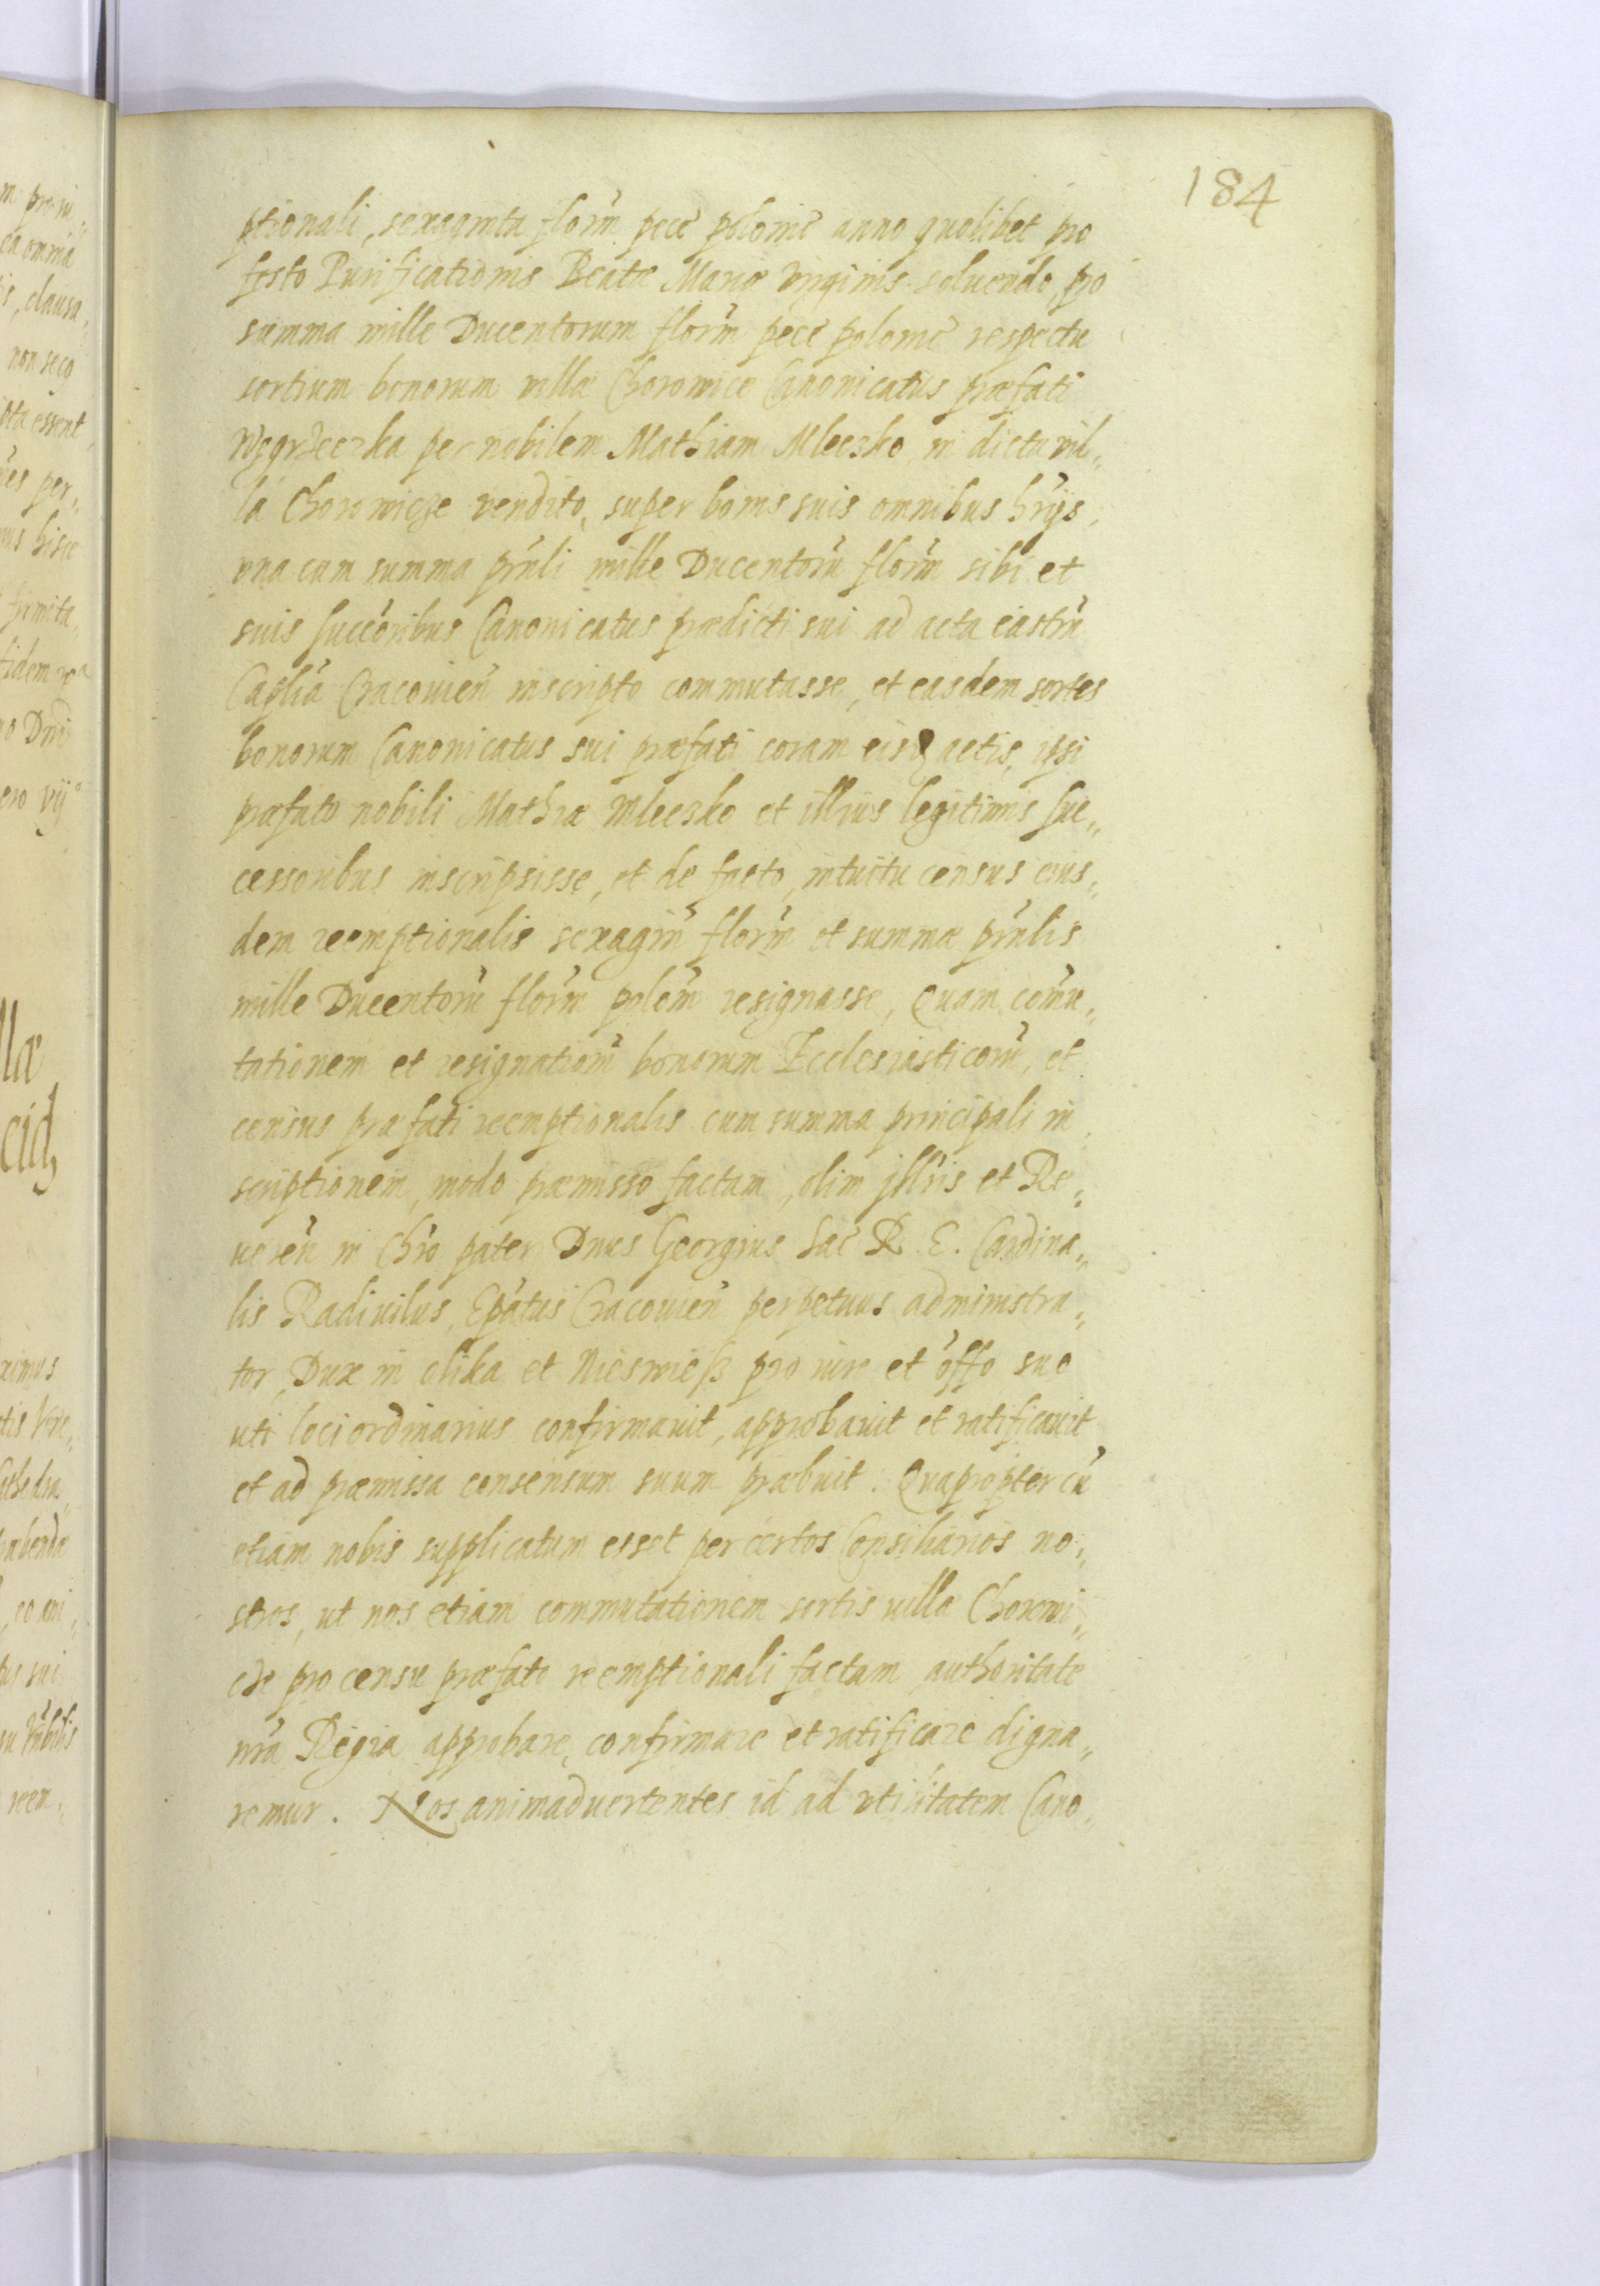 184
ptionali, sexaginta flor͂m pecē polonic̄ anno quolibet pro
festo Purificationis Beatæ Mariæ Virginis soluendo, pro
summa mille Ducentorum flor͂m pecē polonic̄ respectu
sortium bonorum villæ Chorowice Canonicatus præfati
Węgrzeczka per nobilem Mathiam Mleczko, in dicta vil„
la Chorowicze vendito, super bonis suis omnibus hr͂ijs,
vna cum summa pr͂nli mille Ducentor͂u flor͂m sibi et
suis succ͂oribus Canonicatus prædicti sui ad acta castr͂n
Capl͂ia Cracouien͂ inscripto commutasse, et easdem sortes
bonorum Canonicatus sui præfati coram eisdē actis, ipsi
præfato nobili Mathiæ Mleczko et illius legitimis suc„
cessoribus inscripsisse, et de facto, intuitu census eius„
dem reemptionalis sexagin͂ flor͂m et summæ pr͂nlis
mille Ducentor͂u flor͂m polon͂ resignasse, Quam com͂u„
tationem et resignation͂ bonorum Ecclesiasticor͂u, et
census præfati reemptionalis cum summa principali in
scriptionem, modo præmisso factam, olim Jll͂ris et Re„
ueren͂ in Chr͂o pater Dnus Georgius Sac͂ R. E. Cardina„
lis Radiuilus, Ep͂atus Cracouien͂ perpetuus administra„
tor, Dux in Olika et Nieswieß pro iure et off͂o suo
uti loci ordinarius confirmauit, approbauit et ratificauit
et ad præmissa consensum suum præbuit. Quapropter cū
etiam nobis supplicatum esset per certos Consiliarios no„
stros, ut nos etiam commutationem sortis villæ Chorowi„
cze pro censu præfato reemptionali factam authoritate
nr͂a Regia approbare, confirmare et ratificare digna„
remur. Nos animaduertentes id ad vtilitatem Cano„